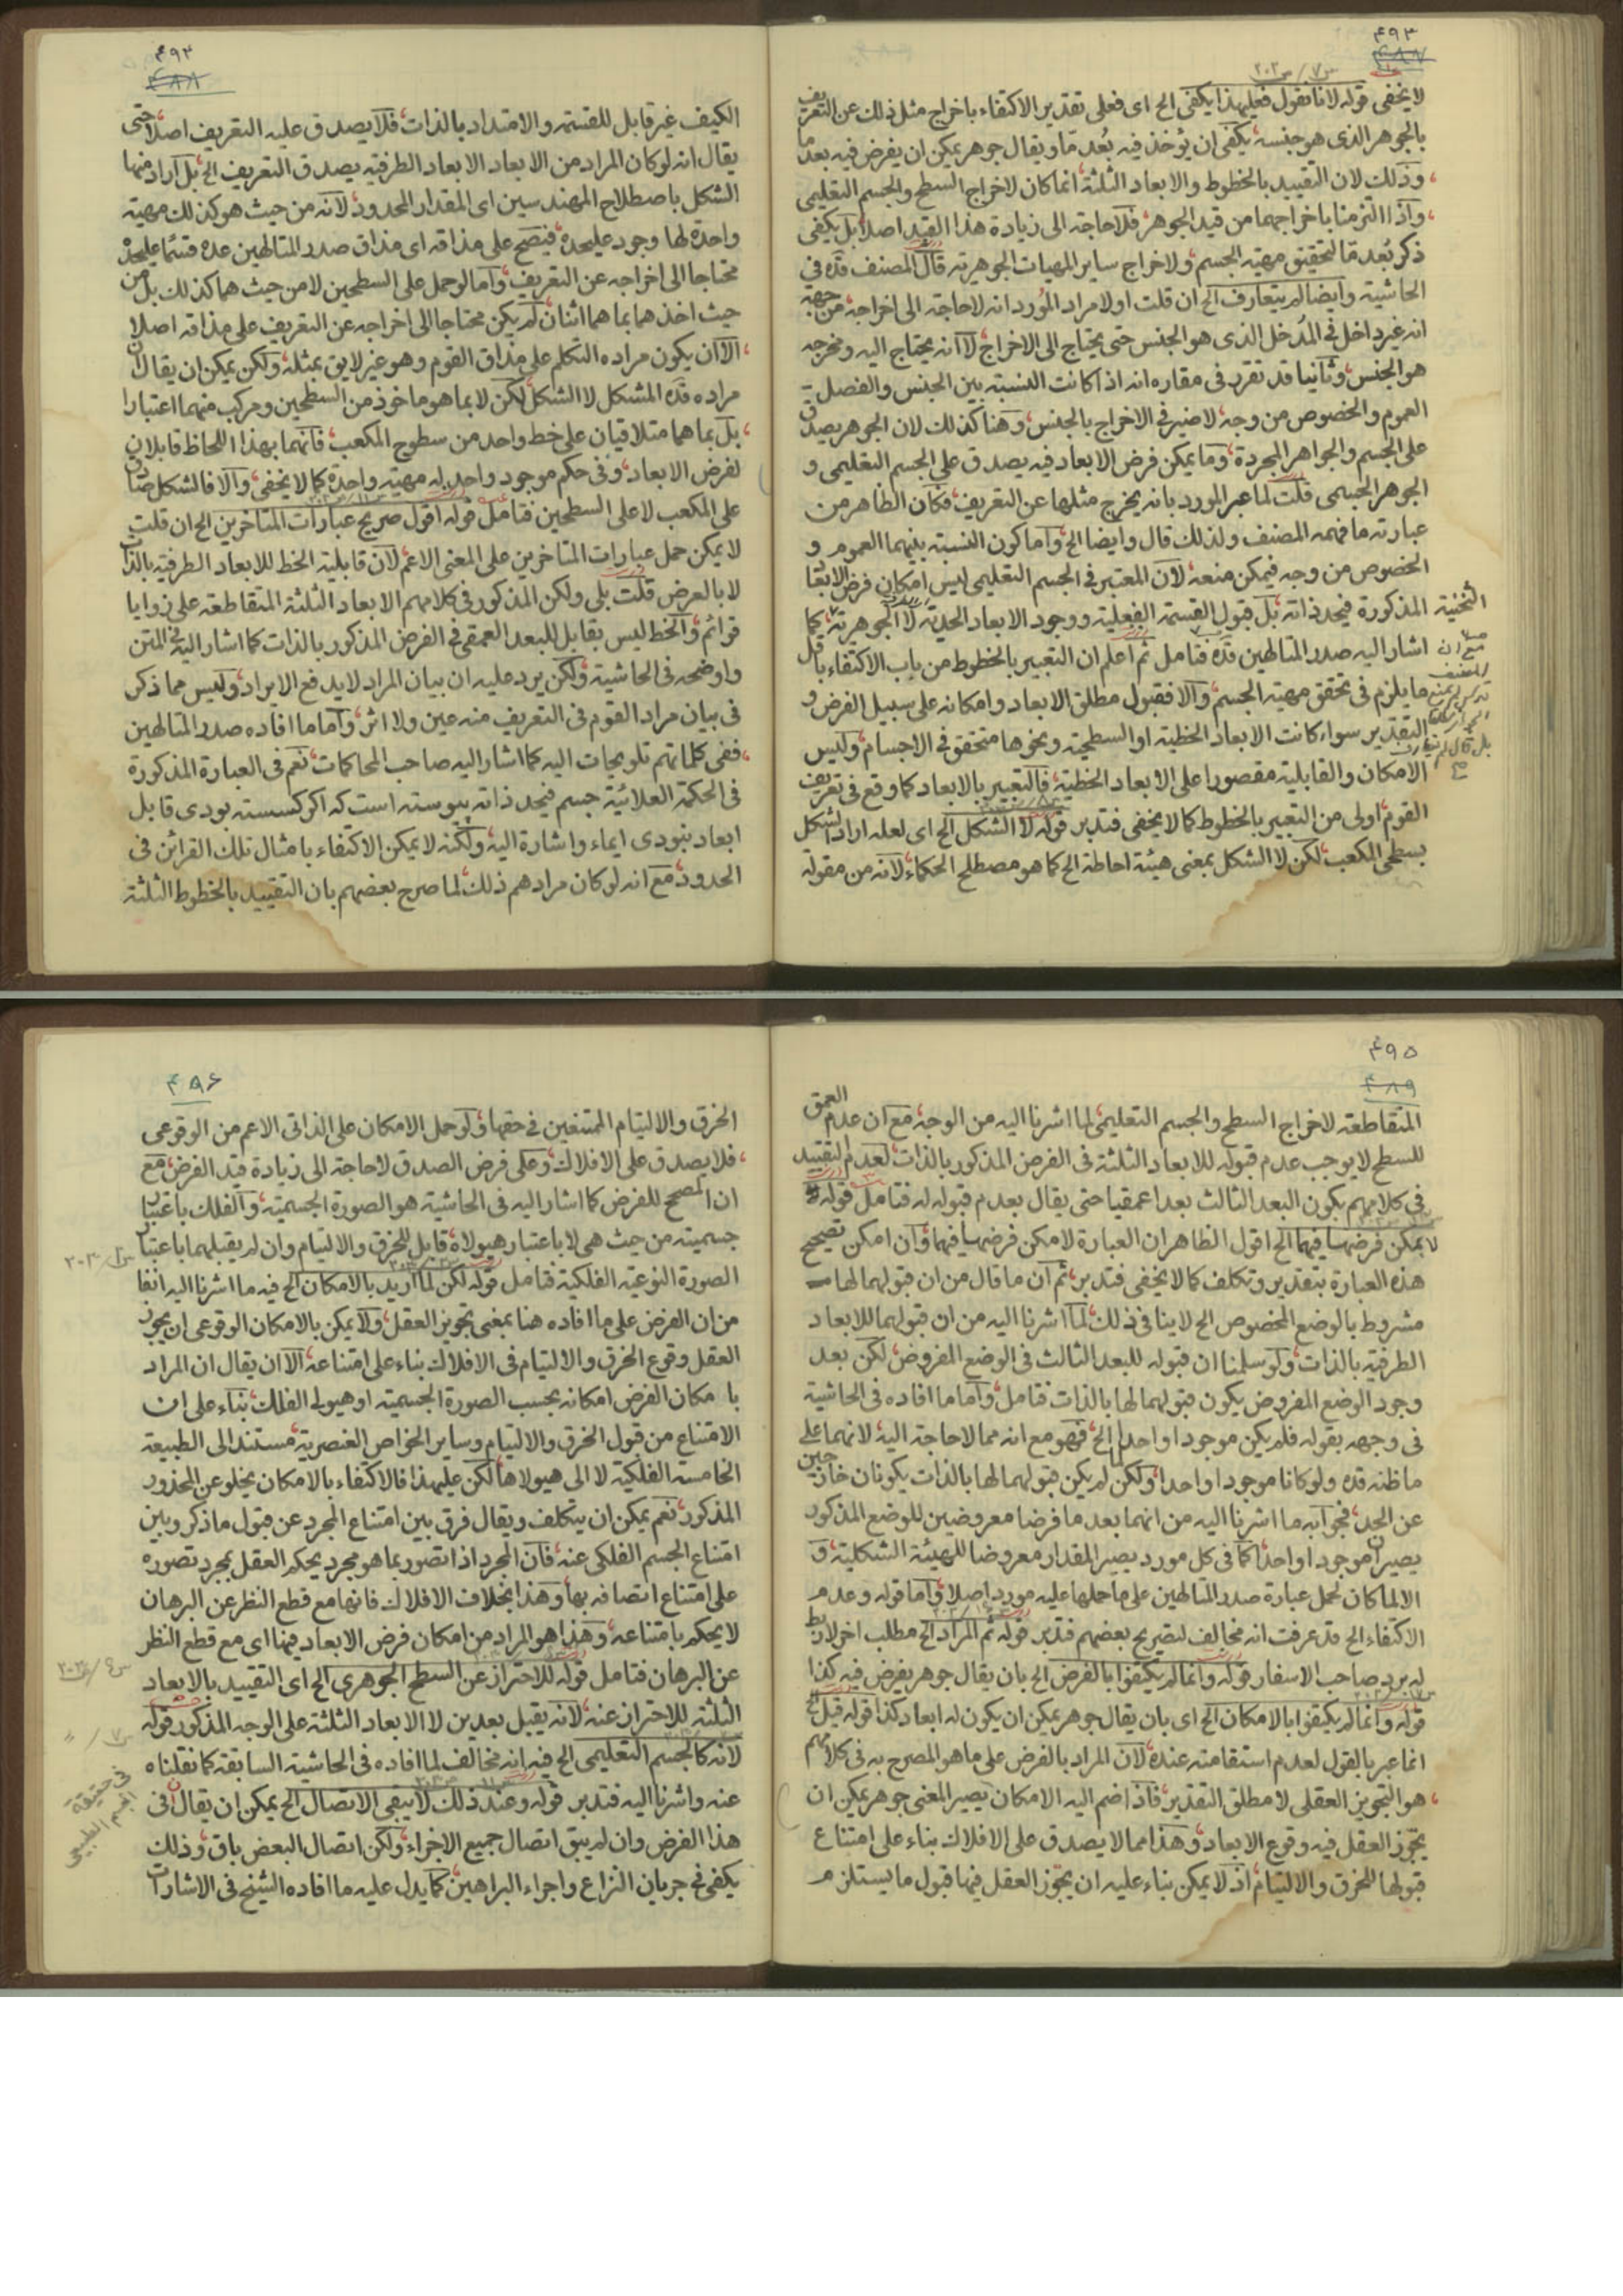 ۴۹۳
۴۸۷
س۷/ص۲۰۲
لا يخفى قوله لانا نقول فعليهذا يكفى الخ اى فعلى تقدير الاكتفاء باخراج مثل ذلك عن التعريف
بالجوهر الذى هو جنسه يكفى ان يؤخذ فيه بُعد مّا ويقال جوهر يمكن ان يفرض فيه بعد ما
وذلك لان التقييد بالخطوط والابعاد الثلثة انما كان لاخراج السطح والجسم التعليمى
واذا التزمنا باخراجهما من قيد الجوهر فلا حاجة الى زيادة هذا القيد اصلا بل يكفى
ذكر بُعد مّا لتحقيق مهيته الجسم ولاخراج ساير المهيات الجوهرية قال المصنف قده فى
الحاشية وايضا لم يتعارف الخ ان قلت اولا مراد المُورد انه لا حاجة الى اخراجه من جهة
انه غير داخل فى المُدخل الذى هو الجنس حتى يحتاج الى الاخراج لا انه يحتاج اليه ومخرجه
هو الجنس وثانيا قد تقرر فى مقاره انه اذا كانت النسبة بين الجنس والفصل
العموم والخصوص من وجه لا ضير فى الاخراج بالجنس وهنا كذلك لان الجوهر يصدق
على الجسم والجواهر المجردة وما يمكن فرض الابعاد فيه يصدق على الجسم التعليمى و
الجوهر الجسمى قلت لما عبر المورد بانه يخرج مثلها عن التعريف فكان الظاهر من
عبارته ما فهمه المصنف ولذلك قال وايضا الخ واما كون النسبة بينهما العموم و
الخصوص من وجه فيمكن منعه لان المعتبر فى الجسم التعليمى ليس امكان فرض الابعاد
الثخينة المذكورة فيحد ذاته بل قبول القسمة الفعلية ووجود الابعاد الحدية لا الجوهرية كما
اشار اليه صدر المتالهين قده فتامل ثم اعلم ان التعبير بالخطوط من باب الاكتفاء باقل
ما يلزم فى تحقق مهية الجسم والا فقبول مطلق الابعاد وامكانه على سبيل الفرض و
التقدير سواء كانت الابعاد الخطية او السطحية ونحوها متحقق فى الاجسام وليس
الامكان والقابلية مقصورا على الابعاد الخطية فالتعبير بالابعاد كما وقع فى تعريف
القوم اولى من التعبير بالخطوط كما لا يخفى فتدبر قوله لا الشكل الخ اى لعله اراد الشكل
بسطحى المكعب لكن لا الشكل بمعنى هيئة احاطة الخ كما هو مصطلح الحكماء لانه من مقولة
مع ان
المصنف
بل قال لم يتعارف
۴۹۳
۴۸۸
الكيف غير قابل للقسمة والامتداد بالذات فلا يصدق عليه التعريف اصلا حتى
يقال انه لو كان المراد من الابعاد الابعاد الطرفية يصدق التعريف الخ بل اراد منها
الشكل باصطلاح المهندسين اى المقدار المحدود لانه من حيث هو كذلك مهية
واحدة لها وجود عليحدة فيصح على مذاقه اى مذاق صدر المتالهين عده قسما عليحدة
محتاجا الى اخراجه عن التعريف واما لو حمل على السطحين لا من حيث هما كذلك بل من
حيث اخذهما بما هما اثنان لم يكن محتاجا الى اخراجه عن التعريف على مذاقه اصلا
الا ان يكون مراده التكلم على مذاق القوم وهو غير لايق بمثله ولكن يمكن ان يقال ان
مراده قده المشكل لا الشكل لكن لا بما هو ماخوذ من السطحين ومركب منهما اعتبارا
بل بما هما متلاقيان على خط واحد من سطوح المكعب فانهما بهذا اللحاظ قابلان
لفرض الابعاد وفى حكم موجود واحد له مهية واحدة كما لا يخفى والا فالشكل صادق
على المكعب لا على السطحين فتامل قوله اقول صريح عبارات المتاخرين الخ ان قلت
لا يمكن حمل عبارات المتاخرين على المعنى الاعم لان قابلية الخط للابعاد الطرفية بالذات
لا بالعرض قلت بلى ولكن المذكور فى كلامهم الابعاد الثلثة المتقاطعة على زوايا
قوائم والخط ليس بقابل للبعد العمقى فى الفرض المذكور بالذات كما اشار اليه فى المتن
واوضحه فى الحاشية ولكن يرد عليه ان بيان المراد لا يدفع الايراد وليس مما ذكر
فى بيان مراد القوم فى التعريف منه عين ولا اثر واما ما افاده صدر المتالهين
ففى كلماتهم تلويحات اليه كما اشار اليه صاحب المحاكمات نعم فى العبارة المذكورة
فى الحكمة العلائية جسم فيحد ذاته پيوسته است كه اكر كسسته بودى قابل
ابعاد نبودى ايماء واشارة اليه ولكنه لا يمكن الاكتفاء بامثال تلك القرائن فى
الحدود مع انه لو كان مرادهم ذلك لما صرح بعضهم بان التقييد بالخطوط الثلثة
۴۹۵
۴۸۹
المتقاطعة لاخراج السطح والجسم التعليمى لما اشرنا اليه من الوجه مع ان عدم العمق
للسطح لا يوجب عدم قبوله للابعاد الثلثة فى الفرض المذكور بالذات لعدم التقييد
فى كلامهم بكون البعد الثالث بعدا عمقيا حتى يقال بعدم قبوله له فتامل قوله
لا يمكن فرضها فيهما الخ اقول الظاهر ان العبارة لامكن فرضها فيهما وان امكن تصحيح
هذه العبارة بتقدير وتكلف كما لا يخفى فتدبر ثم ان ما قال من ان قبولهما لها
مشروط بالوضع المخصوص الخ لا ينافى ذلك لما اشرنا اليه من ان قبولهما للابعاد
الطرفية بالذات ولو سلمنا ان قبوله للبعد الثالث فى الوضع المفروض لكن بعد
وجود الوضع المفروض يكون قبولهما لها بالذات فتامل واما ما افاده فى الحاشية
فى وجهه بقوله فلم يكن موجودا واحدا الخ فهو مع انه مما لا حاجة اليه لانهما على
ما ظنه قده ولو كانا موجودا واحدا ولكن لم يكن قبولهما لها بالذات يكونان خارجين
عن الحد فجوابه ما اشرنا اليه من انهما بعد ما فرضا معروضين للوضع المذكور
يصيران موجودا واحدا كما فى كل مورد يصير المقدار معروضا للهيئة الشكلية و
الا لما كان لحمل عبارة صدر المتالهين على ما حملها عليه مورد اصلا واما قوله وعدم
الاكتفاء الخ قد عرفت انه مخالف لتصريح بعضهم فتدبر قوله ثم المراد الخ مطلب اخر لا ربط
له برد صاحب الاسفار قوله وانما لم يكتفوا بالفرض الخ بان يقال جوهر يفرض فيه كذا
قوله وانما لم يكتفوا بالامكان الخ اى بان يقال جوهر يمكن ان يكون له ابعاد كذا قوله قيل الخ
انما عبر بالقول لعدم استقامته عنده لان المراد بالفرض على ما هو المصرح به فى كلامهم
هو التجويز العقلى لا مطلق التقدير فاذا ضم اليه الامكان يصير المعنى جوهر يمكن ان
يجوّز العقل فيه وقوع الابعاد وهذا مما لا يصدق على الافلاك بناء على امتناع
قبولها للخرق والالتيام اذ لا يمكن بناء عليه ان يجوّز العقل فيها قبول ما يستلزم
۴۹۶
الخرق والالتيام الممتنعين فى حقها ولو حمل الامكان على الذاتى الاعم من الوقوعى
فلا يصدق على الافلاك وعلى فرض الصدق لا حاجة الى زيادة قيد الفرض مع
ان المصحح للفرض كما اشار اليه فى الحاشية هو الصورة الجسمية والفلك باعتبار
جسميته من حيث هى لا باعتبار هيولاه قابل للخرق والالتيام وان لم يقبلهما باعتبار
الصورة النوعية الفلكية فتامل قوله لكن لما اريد بالامكان الخ فيه ما اشرنا اليه انفا
من ان الفرض على ما افاده هنا بمعنى تجويز العقل ولا يمكن بالامكان الوقوعى ان يجوز
العقل وقوع الخرق والالتيام فى الافلاك بناء على امتناعه الا ان يقال ان المراد
بامكان الفرض امكانه بحسب الصورة الجسمية او هيولى الفلك بناء على ان
الامتناع من قبول الخرق والالتيام وساير الخواص العنصرية مستند الى الطبيعة
الخامسة الفلكية لا الى هيولاها لكن عليهذا فالاكتفاء بالامكان يخلو عن المحذور
المذكور نعم يمكن ان يتكلف ويقال فرق بين امتناع المجرد عن قبول ما ذكر وبين
امتناع الجسم الفلكى عنه فان المجرد اذا تصور بما هو مجرد يحكم العقل بمجرد تصوره
على امتناع اتصافه بها وهذا بخلاف الافلاك فانها مع قطع النظر عن البرهان
لا يحكم بامتناعه وهذا هو المراد من امكان فرض الابعاد فيها اى مع قطع النظر
عن البرهان فتامل قوله للاحتراز عن السطح الجوهرى الخ اى التقييد بالابعاد
الثلثة للاحتراز عنه لانه يقبل بعدين لا الابعاد الثلثة على الوجه المذكور قوله
لانه كالجسم التعليمى الخ فيه انه مخالف لما افاده فى الحاشية السابقة كما نقلناه
عنه واشرنا اليه فتدبر قوله وعند ذلك لا يبقى الاتصال الخ يمكن ان يقال ان فى
هذا الفرض وان لم يبق اتصال جميع الاجزاء ولكن اتصال البعض باق وذلك
يكفى فى جريان النزاع واجراء البراهين كما يدل عليه ما افاده الشيخ فى الاشارات
فى حقيقة
الجسم الطبيعى